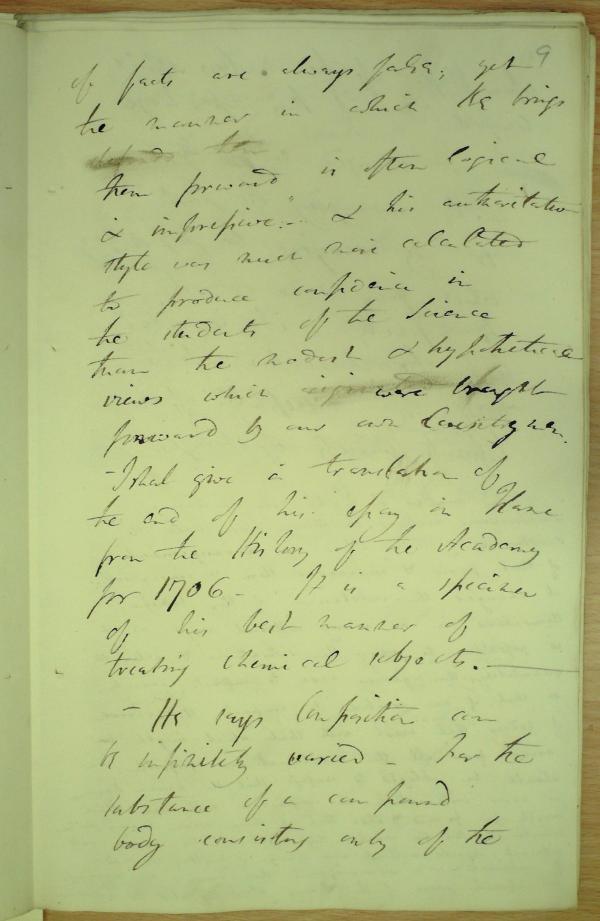 9
of facts are always false; yet
the manner in which He brings
them forward is often logical
& impressive. - & his authoritative
style was much more calculated
to produce confidence in
the students of the Science
than the modest & hypothetical
views which were brought
forward by our own Countrymen.
- I shal give a translation of
the end of his essay on
from the History of the Academy
for 1706 - It is a specimen
of his best manner of
treating chemical subjects. -
- He says Composition can
be infinitely varied - For the
substance of a compound
body consisting only of the